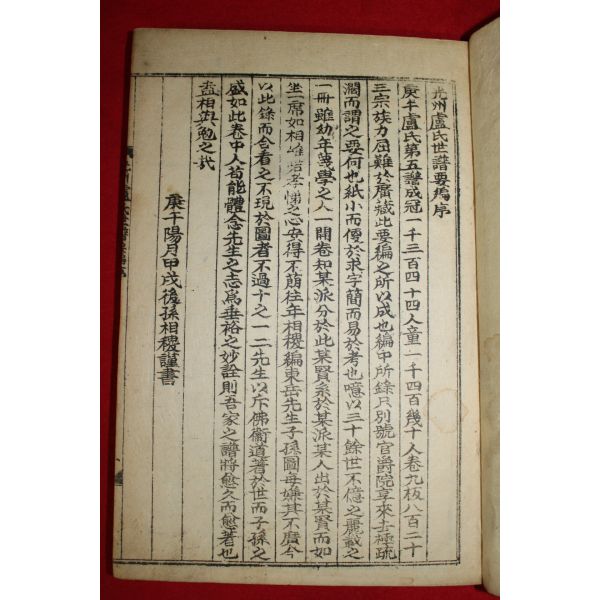 光州盧氏世譜要編序
庚午盧氏第五譜成冠一千三百四十四人童一千四百幾十人卷九板八百二十
三宗族力屈難於廣藏此要編之所以成也編中所錄只別號官爵院享來去極疏
濶而謂之要何也紙小而便於求字簡而易於考也噫以三十餘世不億之麗載之
一冊雖幼年蔑學之人一開卷知某派分於此某賢系於某派某人出於某賢而如
坐一席如相唯諾孝悌之心安得不萠往年相稷編東岳先生子孫圖每嫌其不廣今
以此錄而合看之不現於圖者不過十之一二先生以斥佛衛道著於世而子孫之
盛如此卷中人苟能體念先生之志爲垂裕之妙詮則吾家之譜將愈久而愈著也
盍相與勉之哉
庚午陽月甲戌後孫相稷謹書